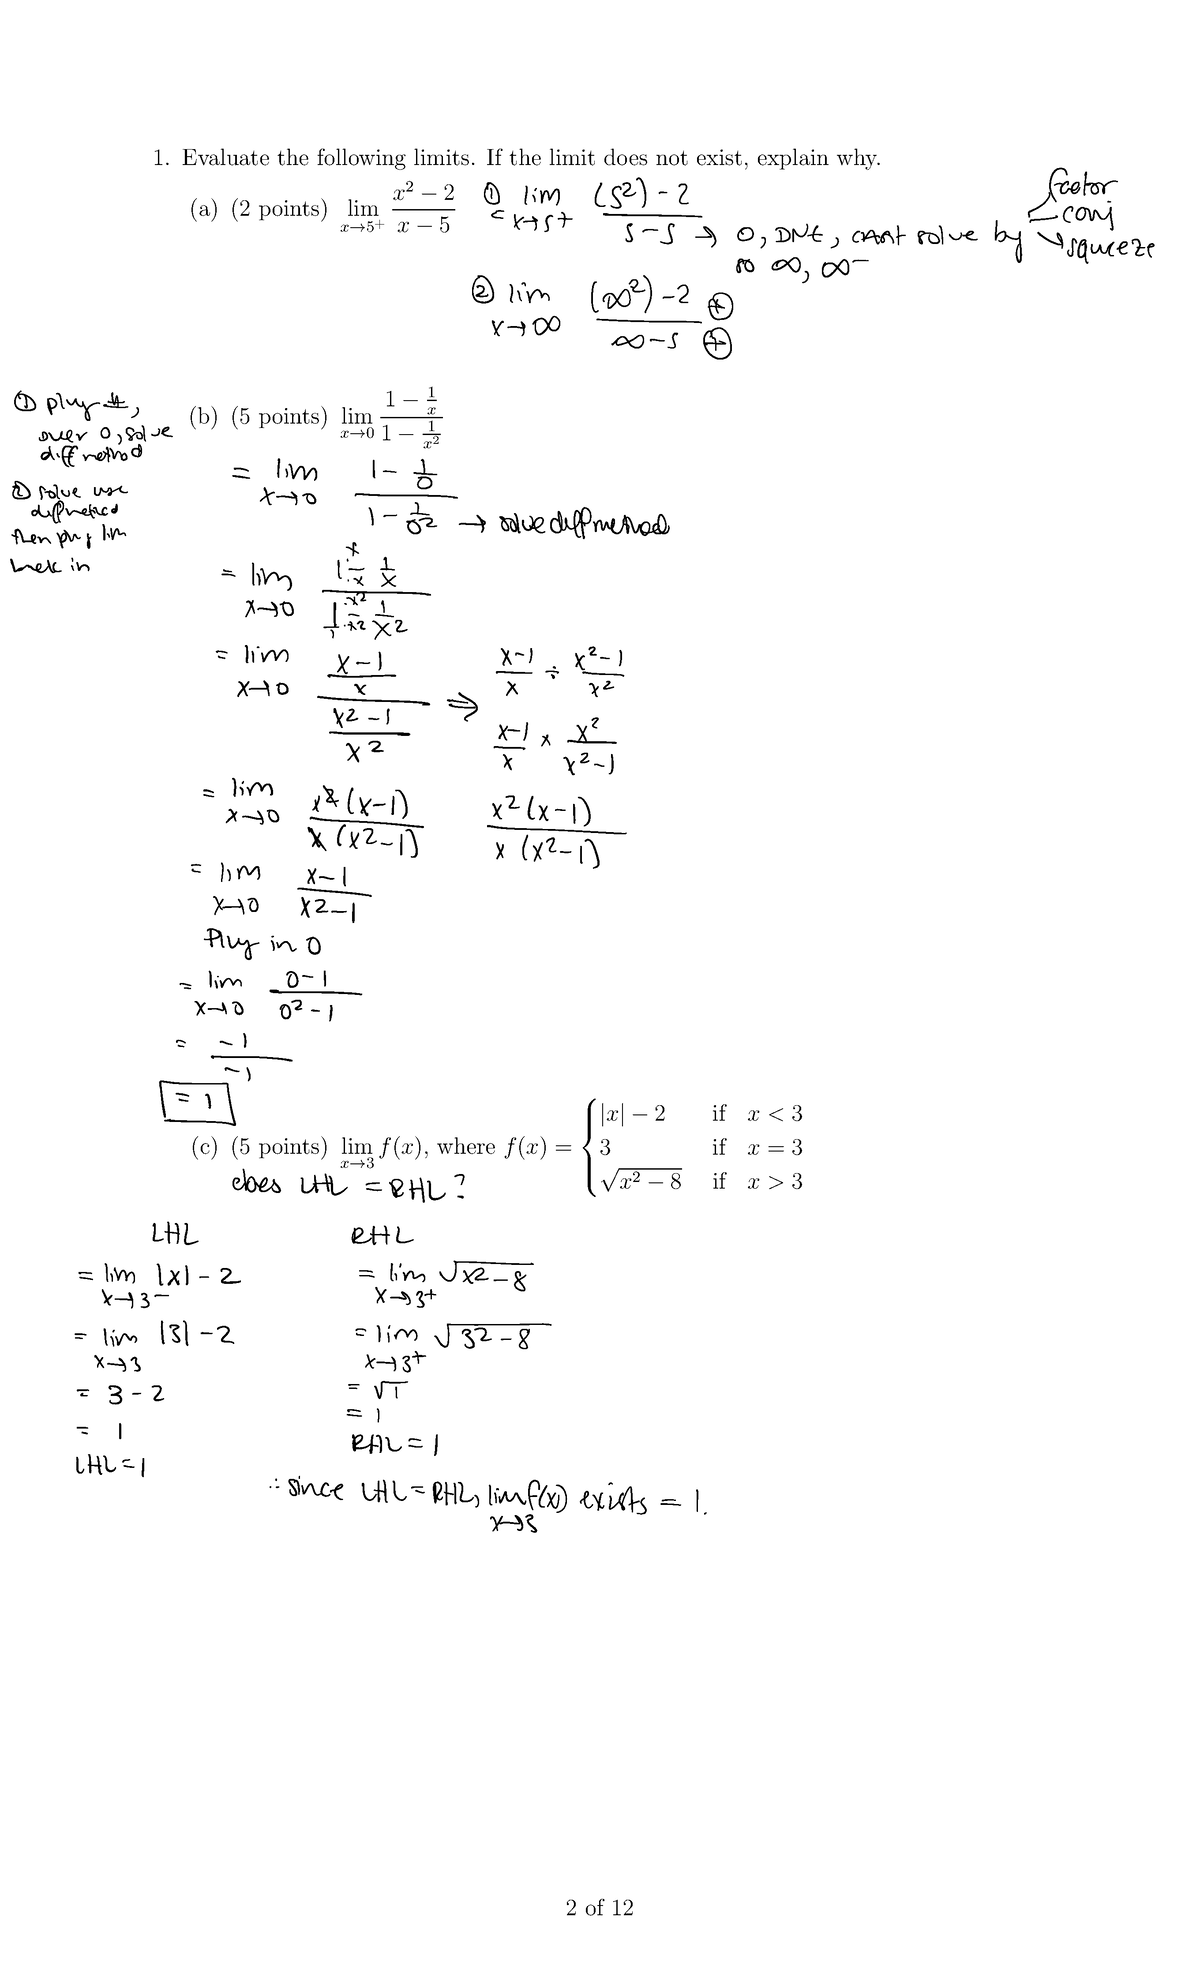 1. Evaluate the following limits. If the limit does not exist, explain why.
(a) (2 points) lim x→5+ (x² − 2)/(x − 5)
① = lim x→5+ ((5²) - 2)/(5-5) → 0, DNE, can't solve by factor
conj
squeeze
so ∞, ∞-
② lim x→∞ ((∞²) - 2)/(∞-5) ⊕ ⊕
① plug #,
over 0, solve
diff method
② solve use
diff method
then plug lim
back in
(b) (5 points) lim x→0 (1 − 1/x)/(1 − 1/x²)
= lim x→0 (1 - 1/0)/(1 - 1/0²) → solve diff method
= lim x→0 (1·x/·x - 1/x)/(1/1 ·x²/·x² - 1/x²)
= lim x→0 ((x-1)/x)/((x²-1)/x²) ⇒ (x-1)/x ÷ (x²-1)/x²
(x-1)/x × x²/(x²-1)
= lim x→0 x²(x-1)/x(x²-1) x²(x-1)/x(x²-1)
= lim x→0 (x-1)/(x²-1)
Plug in 0
= lim x→0 (0-1)/(0²-1)
= -1/-1
= 1
(c) (5 points) lim x→3 f(x), where f(x) = { |x| − 2 if x < 3
3 if x = 3
√(x² − 8) if x > 3
does LHL = RHL?
LHL RHL
= lim x→3- |x| - 2 = lim x→3+ √(x²-8)
= lim x→3 |3| - 2 = lim x→3+ √(3²-8)
= 3 - 2 = √1
= 1 = 1
LHL = 1 RHL = 1
∴ since LHL = RHL, lim x→3 f(x) exists = 1.
2 of 12